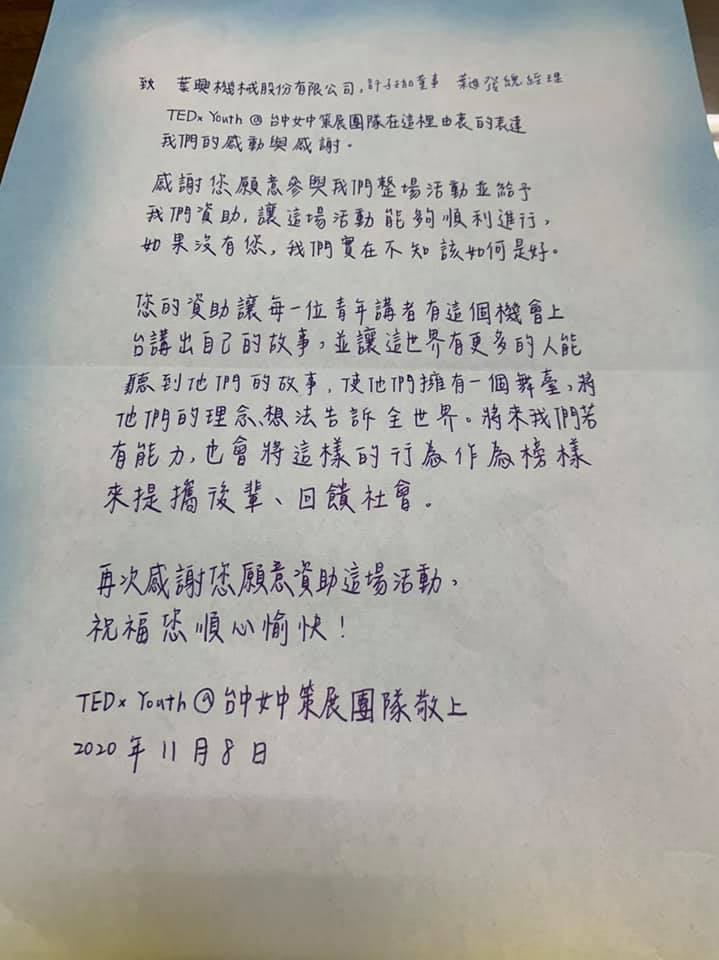 致 葉興機械股份有限公司, 董事 葉 總經理
TEDx Youth @ 台中女中策展團隊在這裡由衷的表達
我們的感動與感謝。
感謝您願意參與我們整場活動並給予
我們資助,讓這場活動能夠順利進行,
如果沒有您,我們實在不知該如何是好。
您的資助讓每一位青年講者有這個機會上
台講出自己的故事,並讓這世界有更多的人能
聽到他們的故事,使他們擁有一個舞臺,將
他們的理念、想法告訴全世界。將來我們若
有能力,也會將這樣的行為作為榜樣
來提攜後輩、回饋社會。
再次感謝您願意資助這場活動,
祝福您順心愉快!
TEDx Youth @ 台中女中策展團隊敬上
2020年11月8日